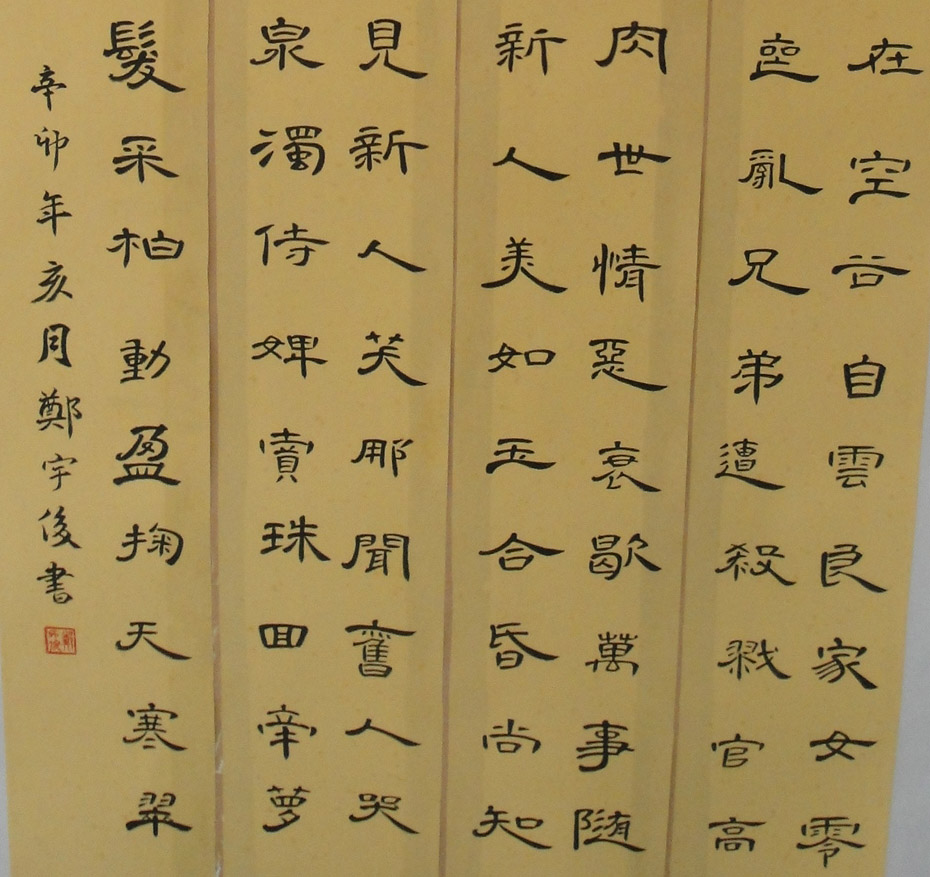 在空谷自雲良家女零
喪亂兄弟遭殺戮官高
肉世情惡衰歇萬事隨
新人美如玉合昏尚知
見新人笑那聞舊人哭
泉濁侍婢賣珠回牽蘿
髮采柏動盈掬天寒翠
辛卯年亥月鄭宇後書